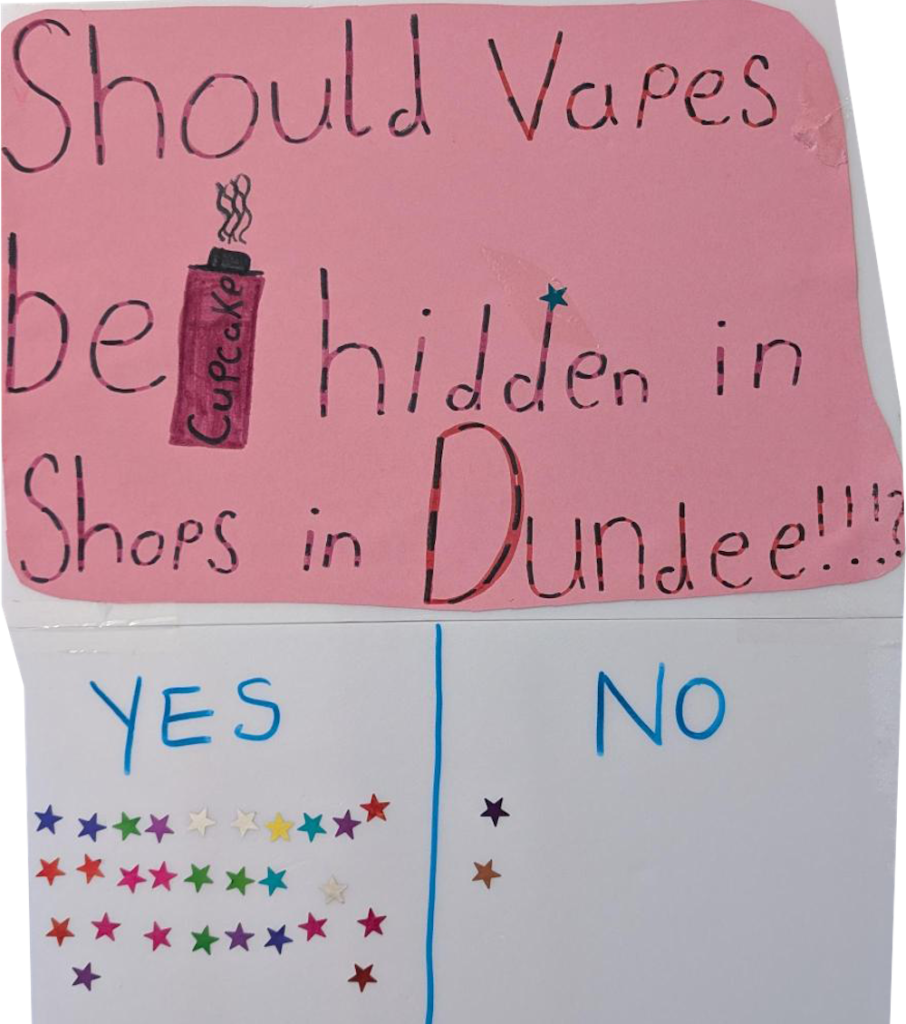 Should Vapes
be Cupcake hidden in
Shops in Dundee!!!?
YES NO